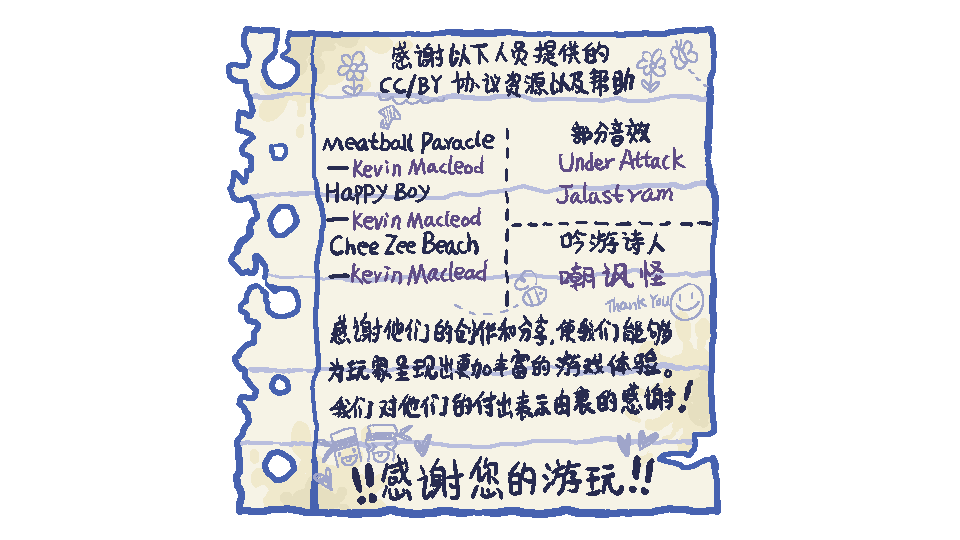 感谢以下人员提供的
CC/BY 协议资源以及帮助
Meatball Paracle
—Kevin Macleod
Happy Boy
—Kevin Macleod
Chee Zee Beach
—Kevin Maclead
部分音效
Under Attack
Jalastram
吟游诗人
嘲讽怪
Thank You
感谢他们的创作和分享,使我们能够
为玩家呈现出更加丰富的游戏体验。
我们对他们的付出表示由衷的感谢!
!!感谢您的游玩!!